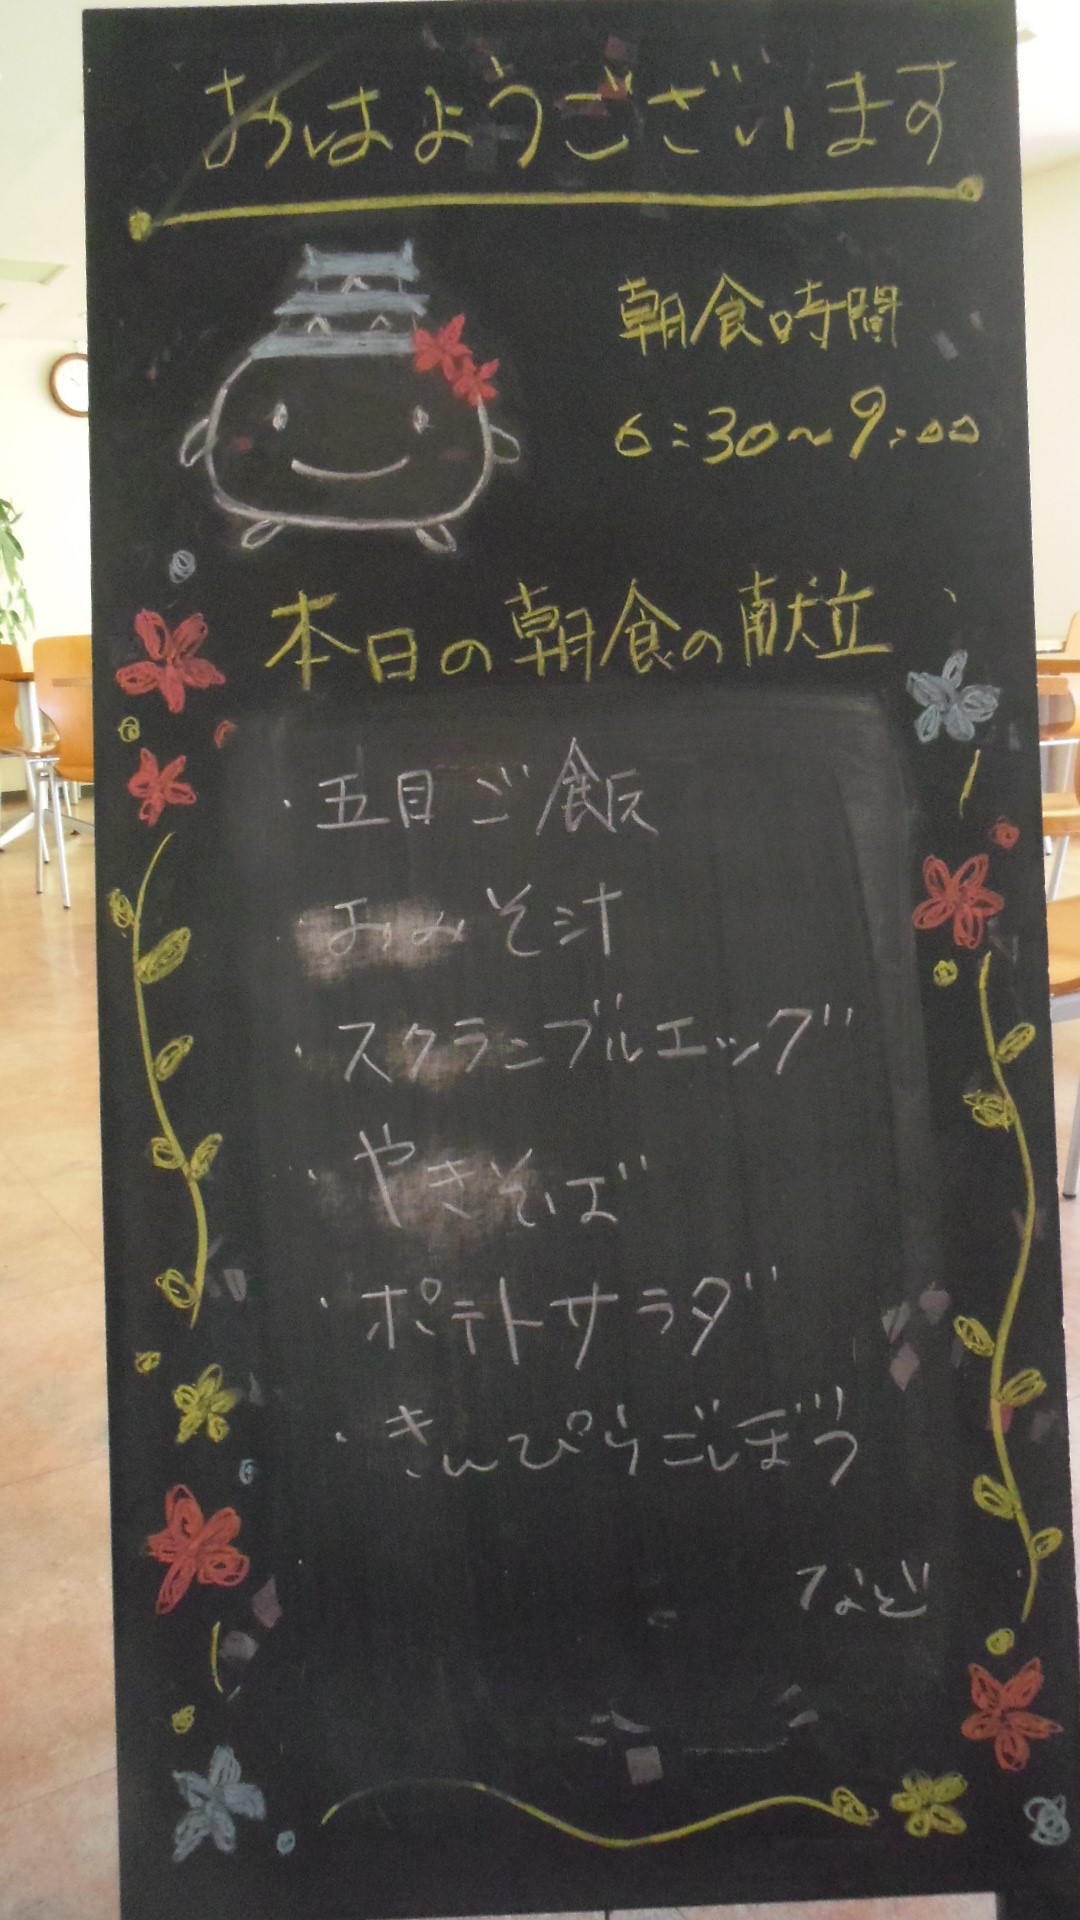 おはようございます
朝食時間
6:30～9:00
本日の朝食の献立
・五目ご飯
・おみそ汁
・スクランブルエッグ
・やきそば
・ポテトサラダ
・きんぴらごぼう
など